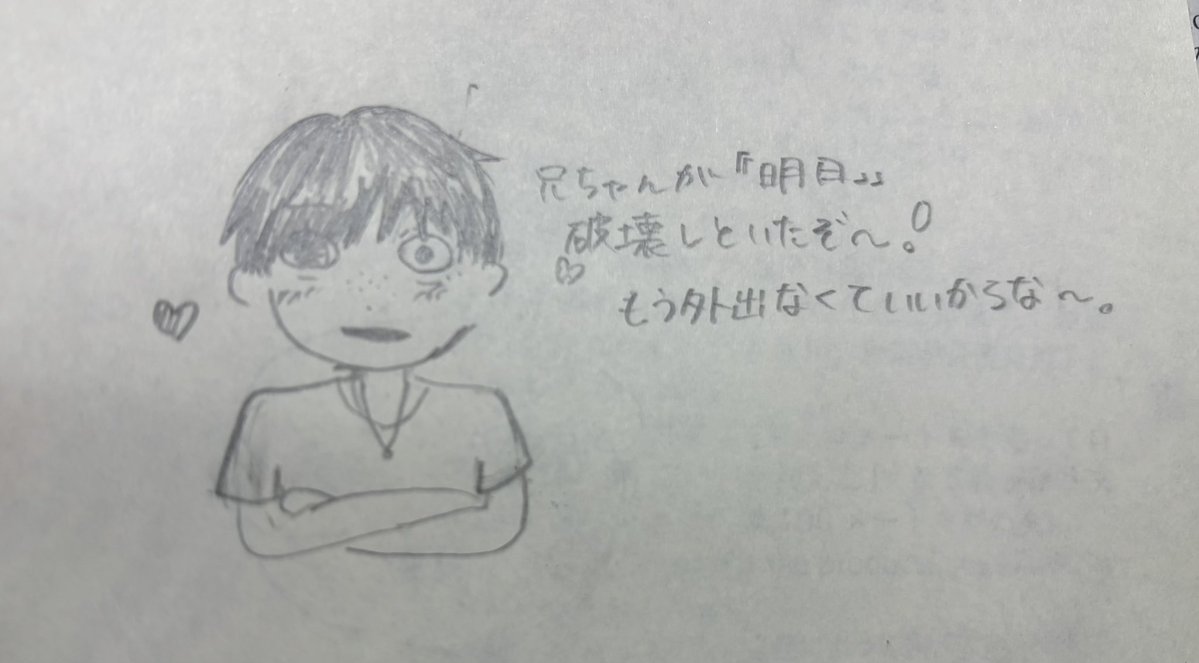 兄ちゃんが『明日』
破壊しといたぞ〜!
もう外出なくていいからな〜。